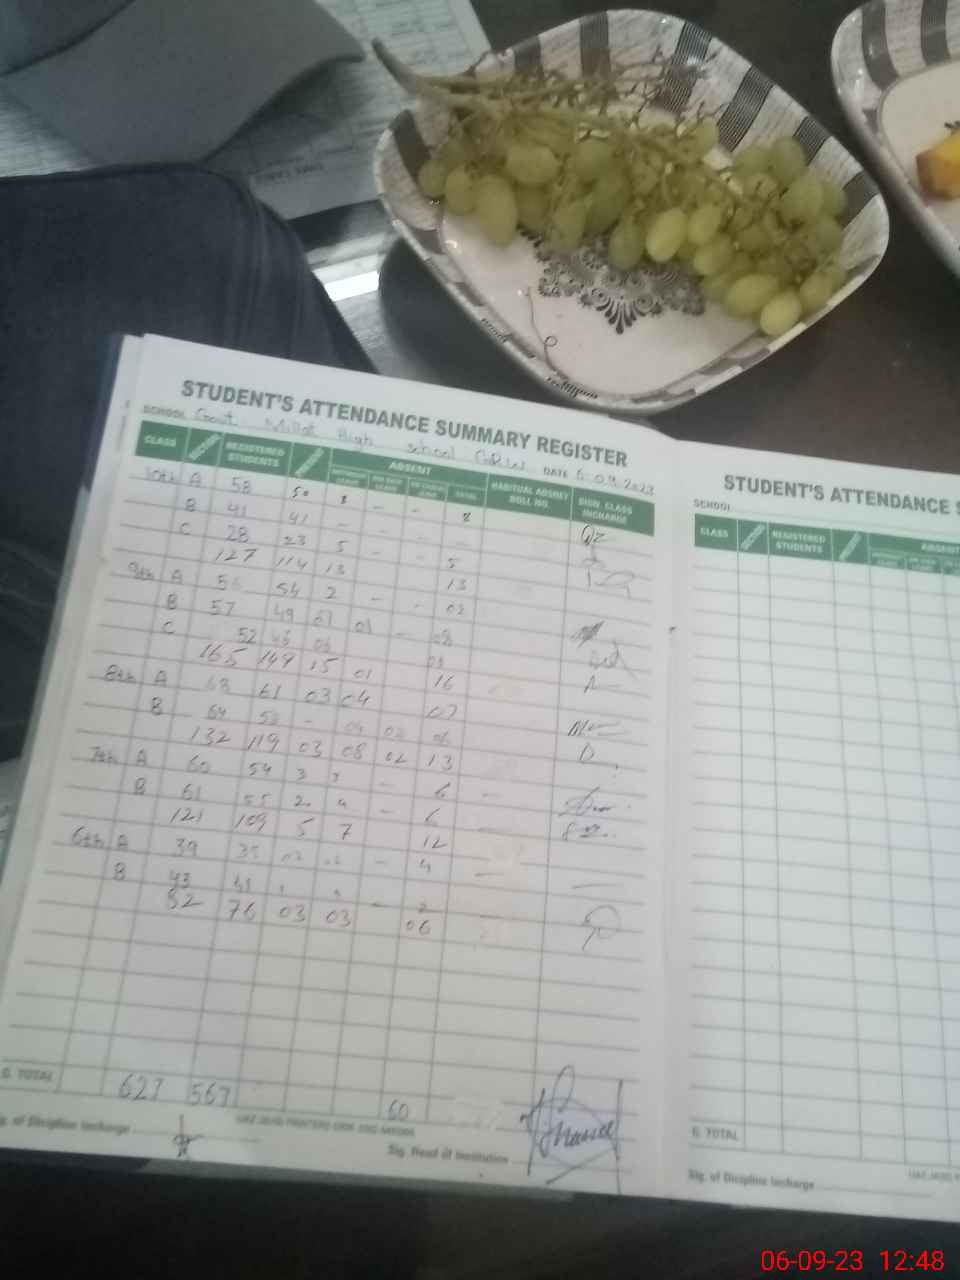 STUDENT'S ATTENDANCE SUMMARY REGISTER
SCHOOL Govt. Millat High School DATE 6.09.2023
CLASS SECTION REGISTERED STUDENTS PRESENT ABSENT WITHOUT LEAVE ON SICK LEAVE ON CASUAL LEAVE TOTAL HABITUAL ABSENT ROLL NO. SIGN. CLASS INCHARGE
10th A 58 50 8 - - 8
B 41 41 - - - -
C 28 23 5 - - 5
127 114 13 13
9th A 56 54 2 - - 02
B 57 49 07 01 - 08
C 52 46 06 06
165 149 15 01 16
8th A 68 61 03 04 07
B 64 58 - 04 02 06
132 119 03 08 02 13
7th A 60 54 3 3 - 6 -
B 61 55 2 4 - 6
121 109 5 7 12
6th A 39 35 02 02 - 4
B 43 41 1 - 2
82 76 03 03 06
G. TOTAL 627 567 60
Sig. of Discipline Incharge
Sig. Head of Institution
STUDENT'S ATTENDANCE S
SCHOOL
CLASS SECTION REGISTERED STUDENTS PRESENT ABSENT
G. TOTAL
Sig. of Discipline Incharge
06-09-23 12:48